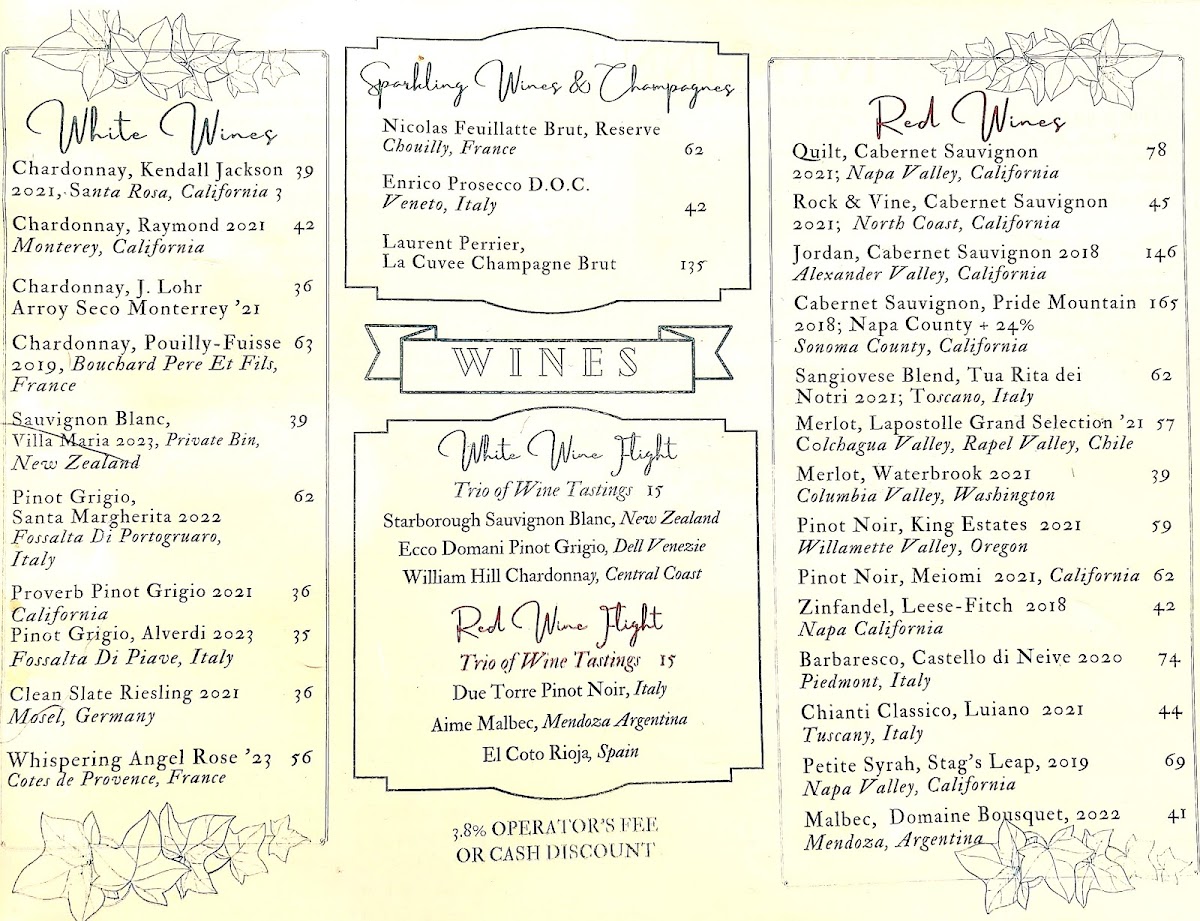 White Wines
Chardonnay, Kendall Jackson 39
2021, Santa Rosa, California 3
Chardonnay, Raymond 2021 42
Monterey, California
Chardonnay, J. Lohr 36
Arroy Seco Monterrey '21
Chardonnay, Pouilly-Fuisse 63
2019, Bouchard Pere Et Fils,
France
Sauvignon Blanc, 39
Villa Maria 2023, Private Bin,
New Zealand
Pinot Grigio, 62
Santa Margherita 2022
Fossalta Di Portogruaro,
Italy
Proverb Pinot Grigio 2021 36
California
Pinot Grigio, Alverdi 2023 35
Fossalta Di Piave, Italy
Clean Slate Riesling 2021 36
Mosel, Germany
Whispering Angel Rose '23 56
Cotes de Provence, France
Sparkling Wines & Champagnes
Nicolas Feuillatte Brut, Reserve
Chouilly, France 62
Enrico Prosecco D.O.C.
Veneto, Italy 42
Laurent Perrier,
La Cuvee Champagne Brut 135
WINES
White Wine Flight
Trio of Wine Tastings 15
Starborough Sauvignon Blanc, New Zealand
Ecco Domani Pinot Grigio, Dell Venezie
William Hill Chardonnay, Central Coast
Red Wine Flight
Trio of Wine Tastings 15
Due Torre Pinot Noir, Italy
Aime Malbec, Mendoza Argentina
El Coto Rioja, Spain
3.8% OPERATOR'S FEE
OR CASH DISCOUNT
Red Wines
Quilt, Cabernet Sauvignon 78
2021; Napa Valley, California
Rock & Vine, Cabernet Sauvignon 45
2021; North Coast, California
Jordan, Cabernet Sauvignon 2018 146
Alexander Valley, California
Cabernet Sauvignon, Pride Mountain 165
2018; Napa County + 24%
Sonoma County, California
Sangiovese Blend, Tua Rita dei 62
Notri 2021; Toscano, Italy
Merlot, Lapostolle Grand Selection '21 57
Colchagua Valley, Rapel Valley, Chile
Merlot, Waterbrook 2021 39
Columbia Valley, Washington
Pinot Noir, King Estates 2021 59
Willamette Valley, Oregon
Pinot Noir, Meiomi 2021, California 62
Zinfandel, Leese-Fitch 2018 42
Napa California
Barbaresco, Castello di Neive 2020 74
Piedmont, Italy
Chianti Classico, Luiano 2021 44
Tuscany, Italy
Petite Syrah, Stag's Leap, 2019 69
Napa Valley, California
Malbec, Domaine Bousquet, 2022 41
Mendoza, Argentina